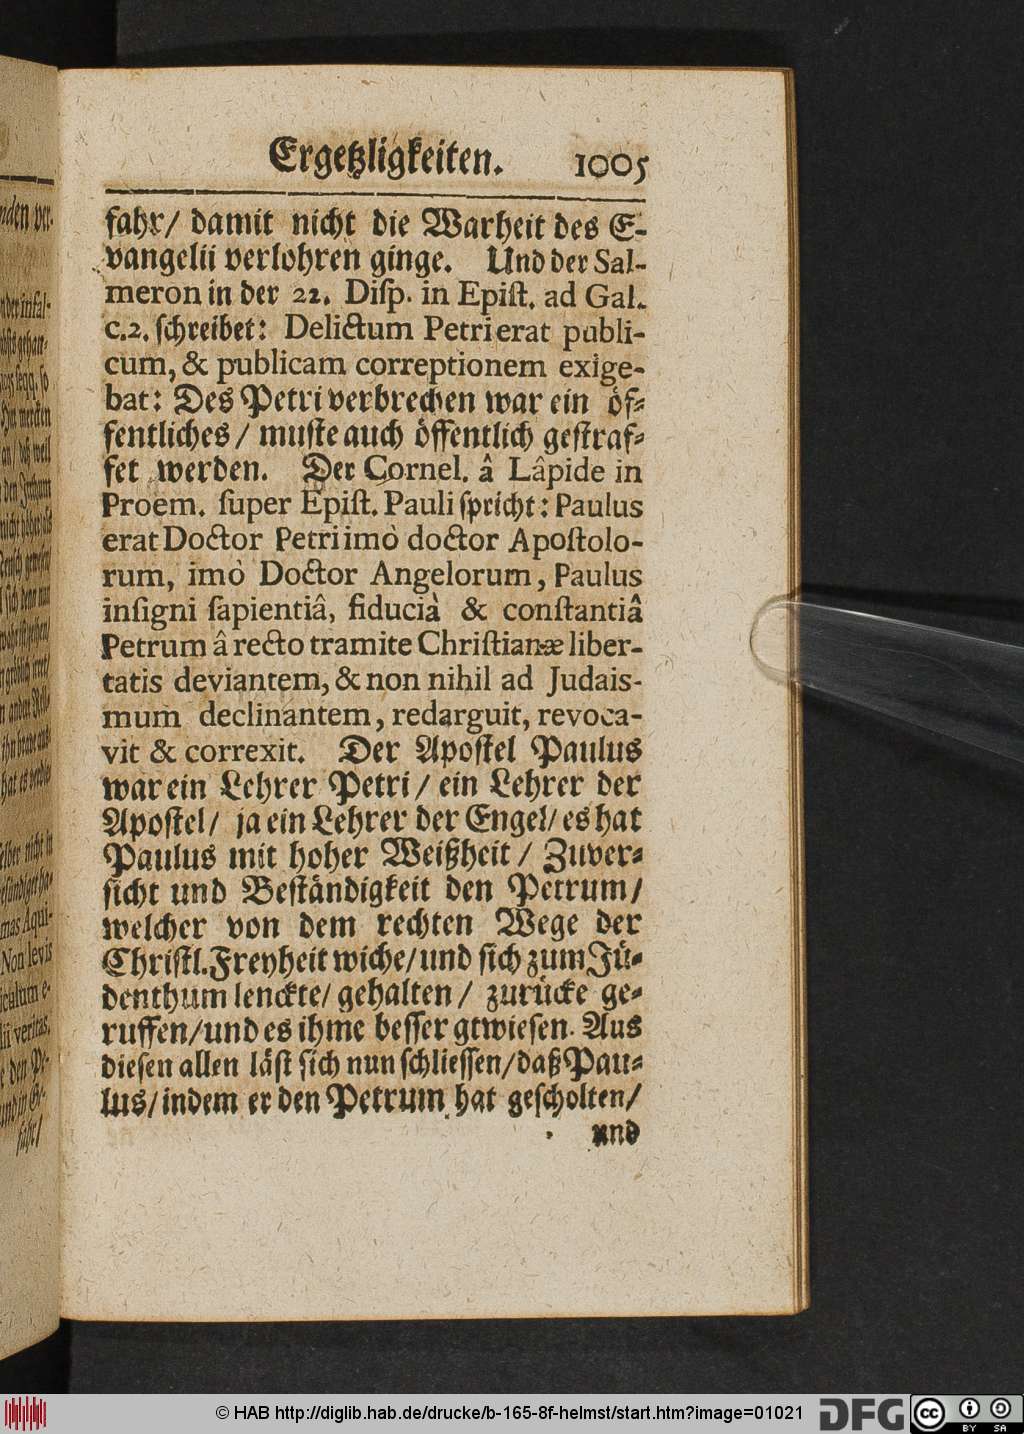 Ergetzligkeiten. 1005
fahr/ damit nicht die Warheit des E-
vangelii verlohren ginge. Und der Sal-
meron in der 22. Disp. in Epist. ad Gal.
c.2. schreibet: Delictum Petri erat publi-
cum, & publicam correptionem exige-
bat: Des Petri verbrechen war ein öf-
fentliches/ muste auch öffentlich gestraf-
fet werden. Der Cornel. â Lâpide in
Proem. super Epist. Pauli spricht: Paulus
erat Doctor Petri imò doctor Apostolo-
rum, imò Doctor Angelorum, Paulus
insigni sapientiâ, fiducià & constantiâ
Petrum â recto tramite Christianæ liber-
tatis deviantem, & non nihil ad Judais-
mum declinantem, redarguit, revoca-
vit & correxit. Der Apostel Paulus
war ein Lehrer Petri/ ein Lehrer der
Apostel/ ja ein Lehrer der Engel/ es hat
Paulus mit hoher Weißheit/ Zuver-
sicht und Beständigkeit den Petrum/
welcher von dem rechten Wege der
Christl. Freyheit wiche/ und sich zum Jü-
denthum lenckte/ gehalten/ zurücke ge-
ruffen/ und es ihme besser gtwiesen. Aus
diesen allen läst sich nun schliessen/ daß Pau-
lus/ indem er den Petrum hat gescholten/
und
© HAB http://diglib.hab.de/drucke/b-165-8f-helmst/start.htm?image=01021
DFG
cc BY SA